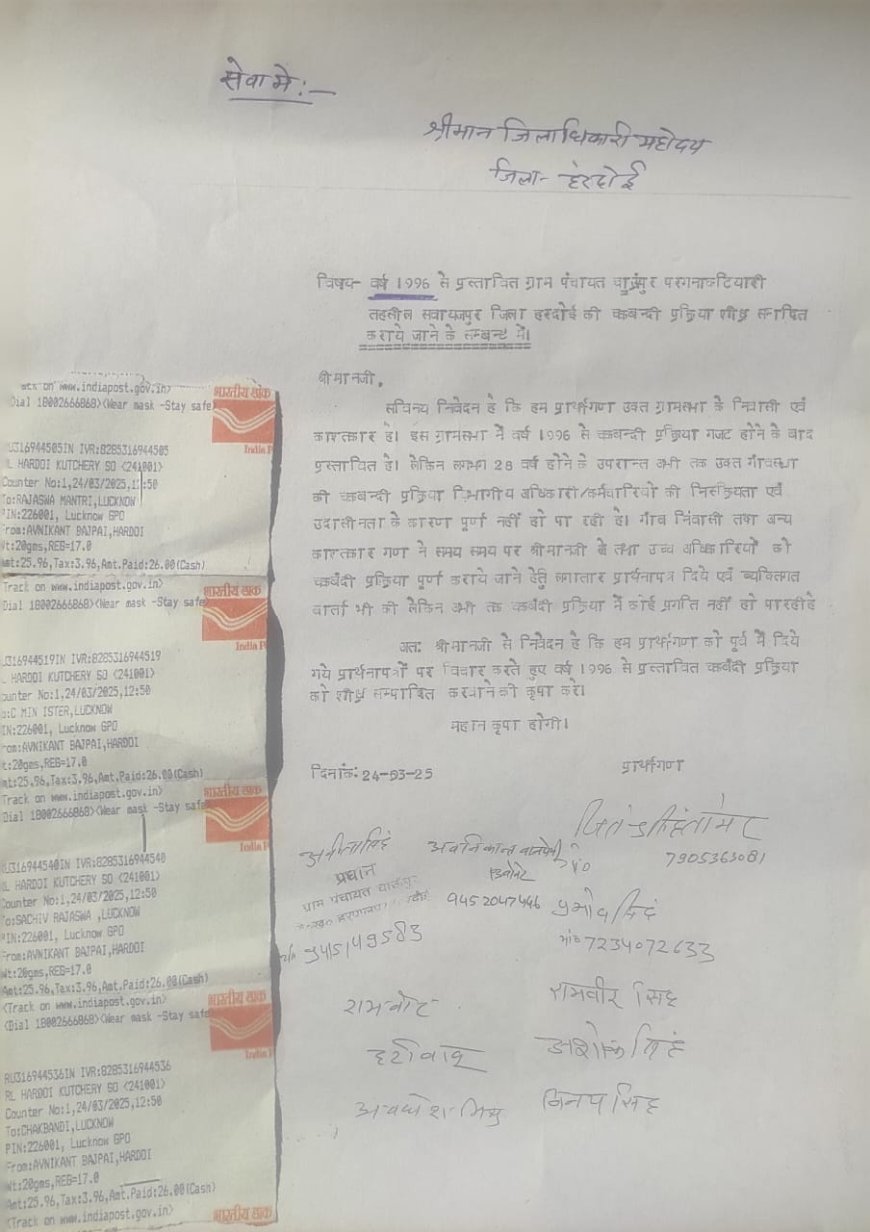 सेवा में:-
श्रीमान जिलाधिकारी महोदय
जिला- हरदोई
विषय- वर्ष 1996 से प्रस्तावित ग्राम पंचायत परगना कटियारी
तहसील सवायजपुर जिला हरदोई की चकबन्दी प्रक्रिया शीघ्र सम्पादित
कराये जाने के सम्बन्ध में।
श्रीमानजी,
सविनय निवेदन है कि हम प्रार्थीगण उक्त ग्रामसभा के निवासी एवं
काश्तकार है। इस ग्रामसभा में वर्ष 1996 से चकबन्दी प्रक्रिया गजट होने के बाद
प्रस्तावित है। लेकिन लगभग 28 वर्ष होने के उपरान्त अभी तक उक्त गाँवसभा
की चकबन्दी प्रक्रिया विभागीय अधिकारी/कर्मचारियों की निस्क्रियता एवं
उदासीनता के कारण पूर्ण नहीं हो पा रही है। गाँव निवासी तथा अन्य
काश्तकार गण ने समय समय पर श्रीमानजी से तथा उच्च अधिकारियों को
चकबंदी प्रक्रिया पूर्ण कराये जाने हेतु लगातार प्रार्थनापत्र दिये एवं व्यक्तिगत
वार्ता भी की लेकिन अभी तक चकबंदी प्रक्रिया में कोई प्रगति नहीं हो पारहीहै
अत: श्रीमानजी से निवेदन है कि हम प्रार्थीगण को पूर्व में दिये
गये प्रार्थनापत्रों पर विचार करते हुए वर्ष 1996 से प्रस्तावित चकबंदी प्रक्रिया
को शीघ्र सम्पादित करवाने की कृपा करे।
महान कृपा होगी।
दिनांक: 24-03-25
प्रार्थीगण
अवनिकान्त बाजपेयी
प्रधान
7905363081
ग्राम पंचायत
9452047446 प्रमोद सिंह
9451149583
मो० 7234072633
रामवीर सिंह
अशोक सिंह
अवधेश मिश्र
विनय सिंह
on www.indiapost.gov.in>
Dial 18002666868><Wear mask -Stay safe
भारतीय डाक
India P
RU316944505IN IVR:8285316944505
RL HARDOI KUTCHERY SO <241001>
Counter No:1,24/03/2025,12:50
To:RAJASWA MANTRI,LUCKNOW
PIN:226001, Lucknow GPO
From:AVNIKANT BAJPAI,HARDOI
Wt:20gms,REG=17.0
Amt:25.96,Tax:3.96,Amt.Paid:26.00(Cash)
Track on www.indiapost.gov.in>
Dial 18002666868><Wear mask -Stay safe
भारतीय डाक
India P
U316944519IN IVR:8285316944519
L HARDOI KUTCHERY SO <241001>
ounter No:1,24/03/2025,12:50
o:C MIN ISTER,LUCKNOW
IN:226001, Lucknow GPO
rom:AVNIKANT BAJPAI,HARDOI
t:20gms,REG=17.0
mt:25.96,Tax:3.96,Amt.Paid:26.00(Cash)
Track on www.indiapost.gov.in>
Dial 18002666868><Wear mask -Stay safe
भारतीय डाक
India P
RU316944540IN IVR:8285316944540
RL HARDOI KUTCHERY SO <241001>
Counter No:1,24/03/2025,12:50
To:SACHIV RAJASWA ,LUCKNOW
PIN:226001, Lucknow GPO
From:AVNIKANT BAJPAI,HARDOI
Wt:20gms,REG=17.0
Amt:25.96,Tax:3.96,Amt.Paid:26.00(Cash)
<Track on www.indiapost.gov.in>
<Dial 18002666868><Wear mask -Stay safe
भारतीय डाक
India P
RU316944536IN IVR:8285316944536
RL HARDOI KUTCHERY SO <241001>
Counter No:1,24/03/2025,12:50
To:CHAKBANDI,LUCKNOW
PIN:226001, Lucknow GPO
From:AVNIKANT BAJPAI,HARDOI
Wt:20gms,REG=17.0
Amt:25.96,Tax:3.96,Amt.Paid:26.00(Cash)
<Track on www.indiapost.gov.in>
भारतीय डाक